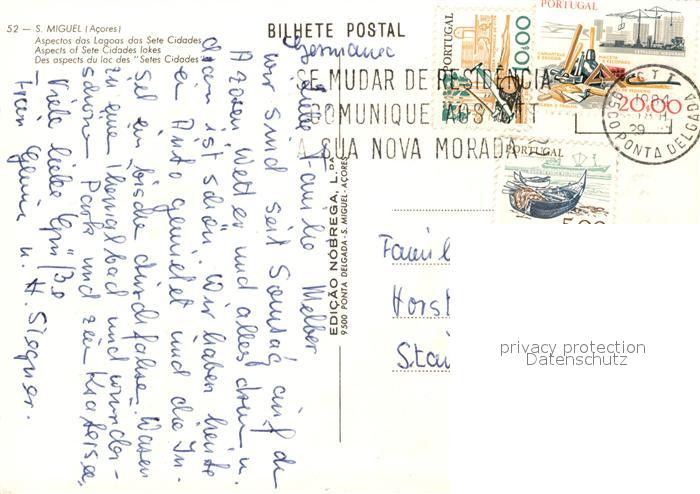 52 — S. MIGUEL (Açores)
Aspectos das Lagoas das Sete Cidades
Aspects of Sete Cidades lakes
Des aspects du lac des "Setes Cidades"
BILHETE POSTAL
Germania
SE MUDAR DE RESIDÊNCIA
COMUNIQUE AOS CTT
A SUA NOVA MORADA
PORTUGAL
10.00
PORTUGAL
20.00
PORTUGAL
5.00
CTT
9500 PONTA DELGADA
29
EDIÇÃO NÓBREGA, L.DA
9500 PONTA DELGADA - S. MIGUEL - AÇORES
Liebe Familie Melber
wir sind seit Sonntag auf d
Azoren Wetter und alles drum u.
dran ist schön. Wir haben heute
er Auto gemietet und die In-
sel ein bische durchfahren. Waren
zu eine Thermalbad und wunder-
schönen Park und zum Kratersee,
Viele liebe Grüße
Fam
u. H.
Famil
Horst
privacy protection
Datenschutz